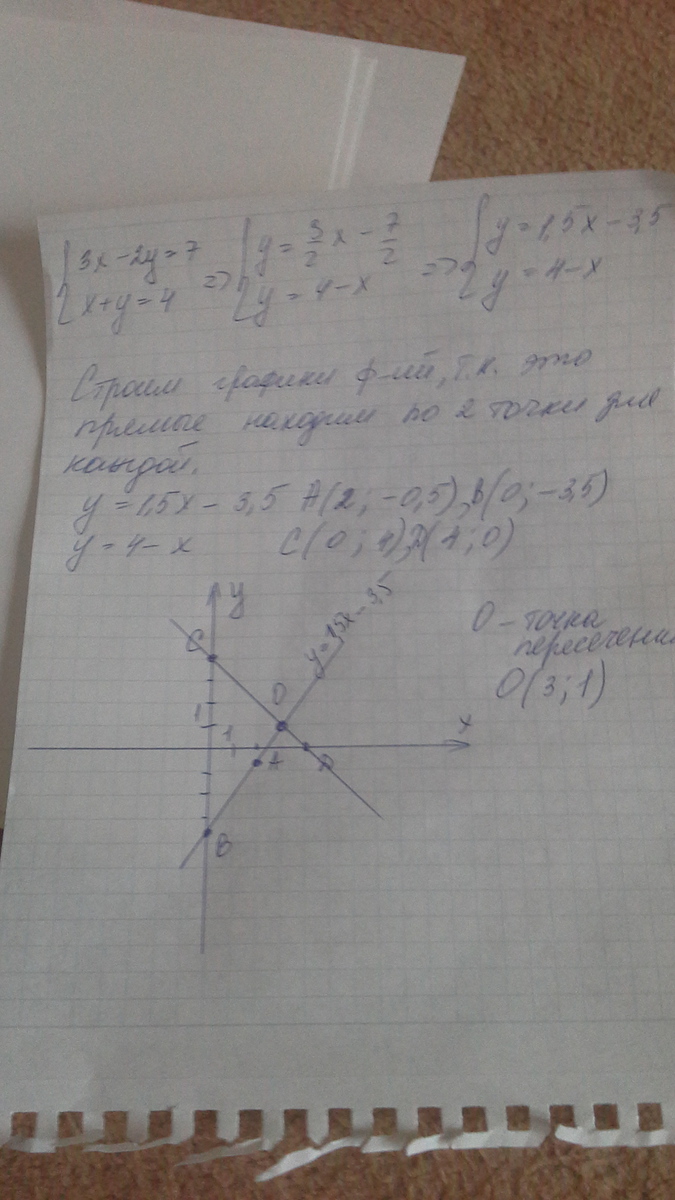 {3x-2y=7 => {y=3/2x-7/2 => {y=1,5x-3,5
{x+y=4 {y=4-x {y=4-x
Строим графики ф-ий, т.к. это
прямые находим по 2 точки для
каждой.
y=1,5x-3,5 A(2; -0,5), B(0; -3,5)
y=4-x C(0; 4), D(4; 0)
y
y=1,5x-3,5
C
O
1
1
x
A
D
B
O - точка
пересечения
O(3; 1)